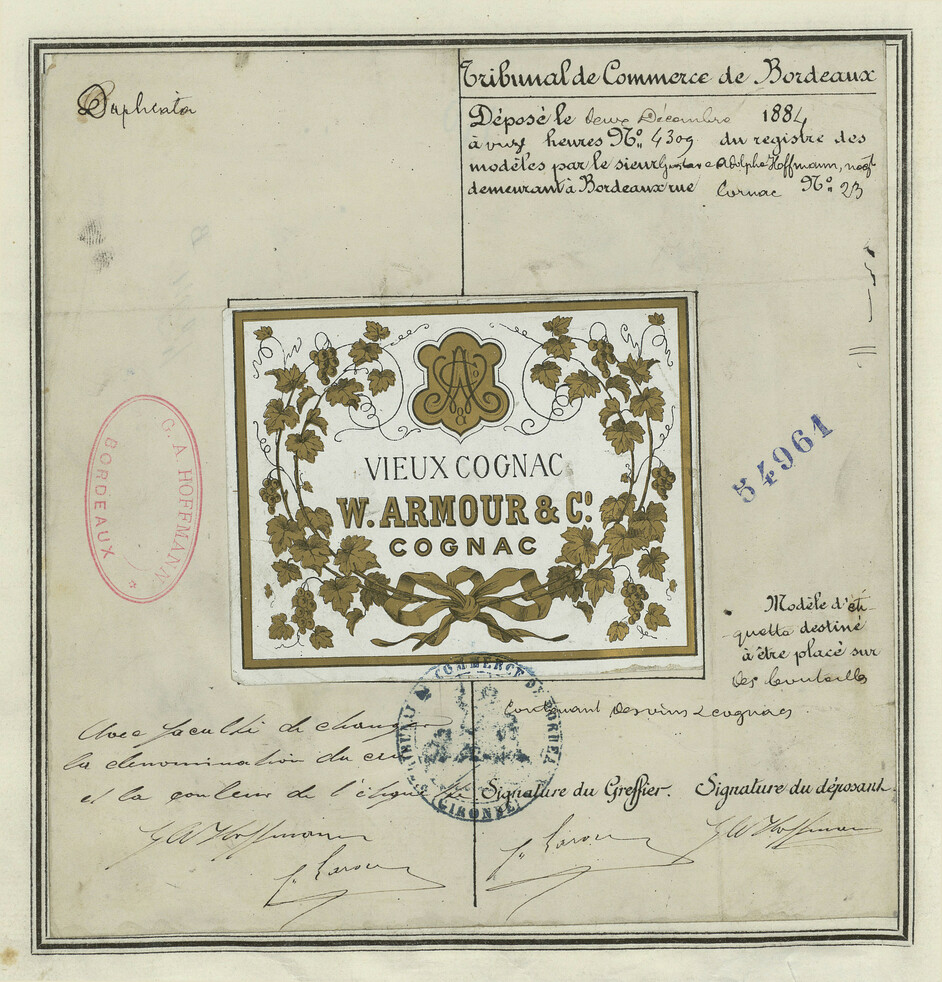 Duplicata
Tribunal de Commerce de Bordeaux
Déposé le deux Décembre 1884
à onze heures No. 4309 du registre des
modèles par le sieur Gustave Adolphe Hoffmann, négt
demeurant à Bordeaux rue Cornac No. 23
VIEUX COGNAC
W. ARMOUR & Co.
COGNAC
G. A. HOFFMANN
BORDEAUX
54961
Modèle d'éti-
-quette destiné
à être placé sur
des bouteilles
contenant des vins & cognacs
TRIBUNAL DE COMMERCE DE BORDEAUX
(GIRONDE)
Avec faculté de changer
la dénomination du cru
et la couleur de l'étiquette
Signature du Greffier. Signature du déposant.
Hoffmann
Hoffmann